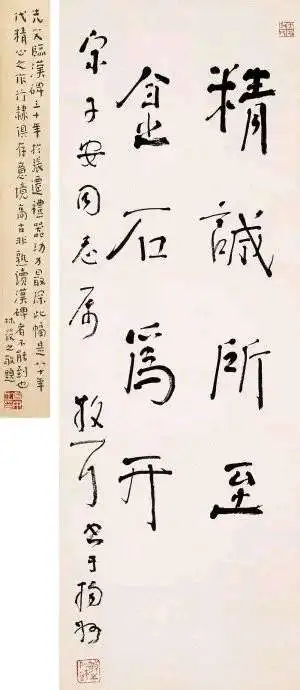 精誠所至
金石爲开
宗子安同志属 散耳书于扬州
先父臨漢碑三十年於張遷禮器功力最深此幅是八十年
代精心之作行隸俱存意境高古非熟讀漢碑者不能到也
林筱之敬題